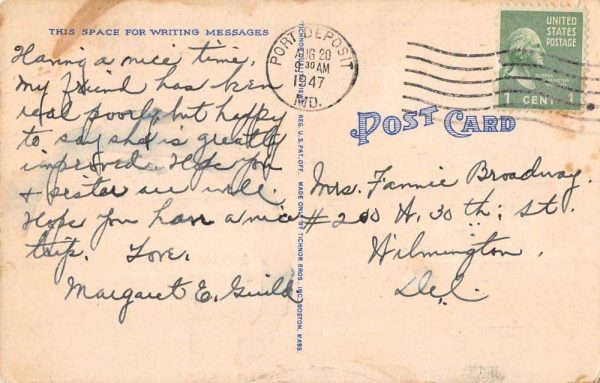 THIS SPACE FOR WRITING MESSAGES
Having a nice time,
my friend has been
real poorly but happy
to say she is greatly
improved. Hope you
& sister are well.
Hope you have a nice
trip. Love,
Margaret E. Guild
TICHNOR QUALITY VIEWS REG. U.S. PAT. OFF. MADE ONLY BY TICHNOR BROS. INC. BOSTON, MASS.
PORT DEPOSIT
AUG 20
9 30 AM
1947
MD.
UNITED
STATES
POSTAGE
GEORGE
WASHINGTON
1 CENT 1
POST CARD
Mrs. Fannie Broadway.
# 200 W. 30 th; St.
Wilmington,
Del.